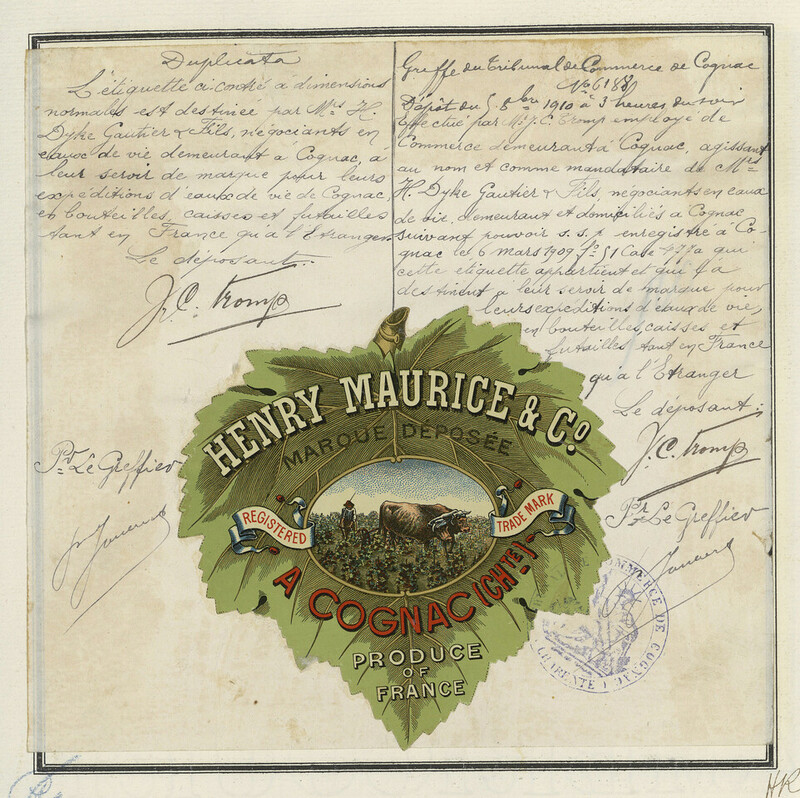 Duplicata
L'étiquette ci contre a dimensions
normales est destinée par Mrs H.
Dyke Gautier & Fils, négociants en
eaux de vie demeurant à Cognac, à
leur servir de marque pour leurs
expéditions d'eaux de vie de Cognac,
en bouteilles, caisses et futailles
tant en France qu'à l'Etranger
Le déposant:
J. C. Tromp
Pr Le Greffier
Greffe du Tribunal de Commerce de Cognac
No 6188
Dépôt du 5 8bre 1910 à 3 heures du soir
Effectué par Mr J. C. Tromp employé de
Commerce demeurant à Cognac, agissant
au nom et comme mandataire de Mrs
H. Dyke Gautier & Fils, négociants en eaux
de vie, demeurant et domiciliés à Cognac
suivant pouvoir s. s. p. enregistré à Co-
gnac le 6 mars 1909 fo 51 Case 477a qui
cette etiquette appartient et qui l'a
destinent à leur servir de marque pour
leurs expéditions d'eaux de vie,
en bouteilles, caisses et
futailles tant en France
qu'à l'Etranger
Le déposant:
J. C. Tromp
Pr Le Greffier
HENRY MAURICE & Co.
MARQUE DÉPOSÉE
REGISTERED
TRADE MARK
A COGNAC (CHTE)
PRODUCE
OF
FRANCE
COMMERCE DE COGNAC
CHARENTE